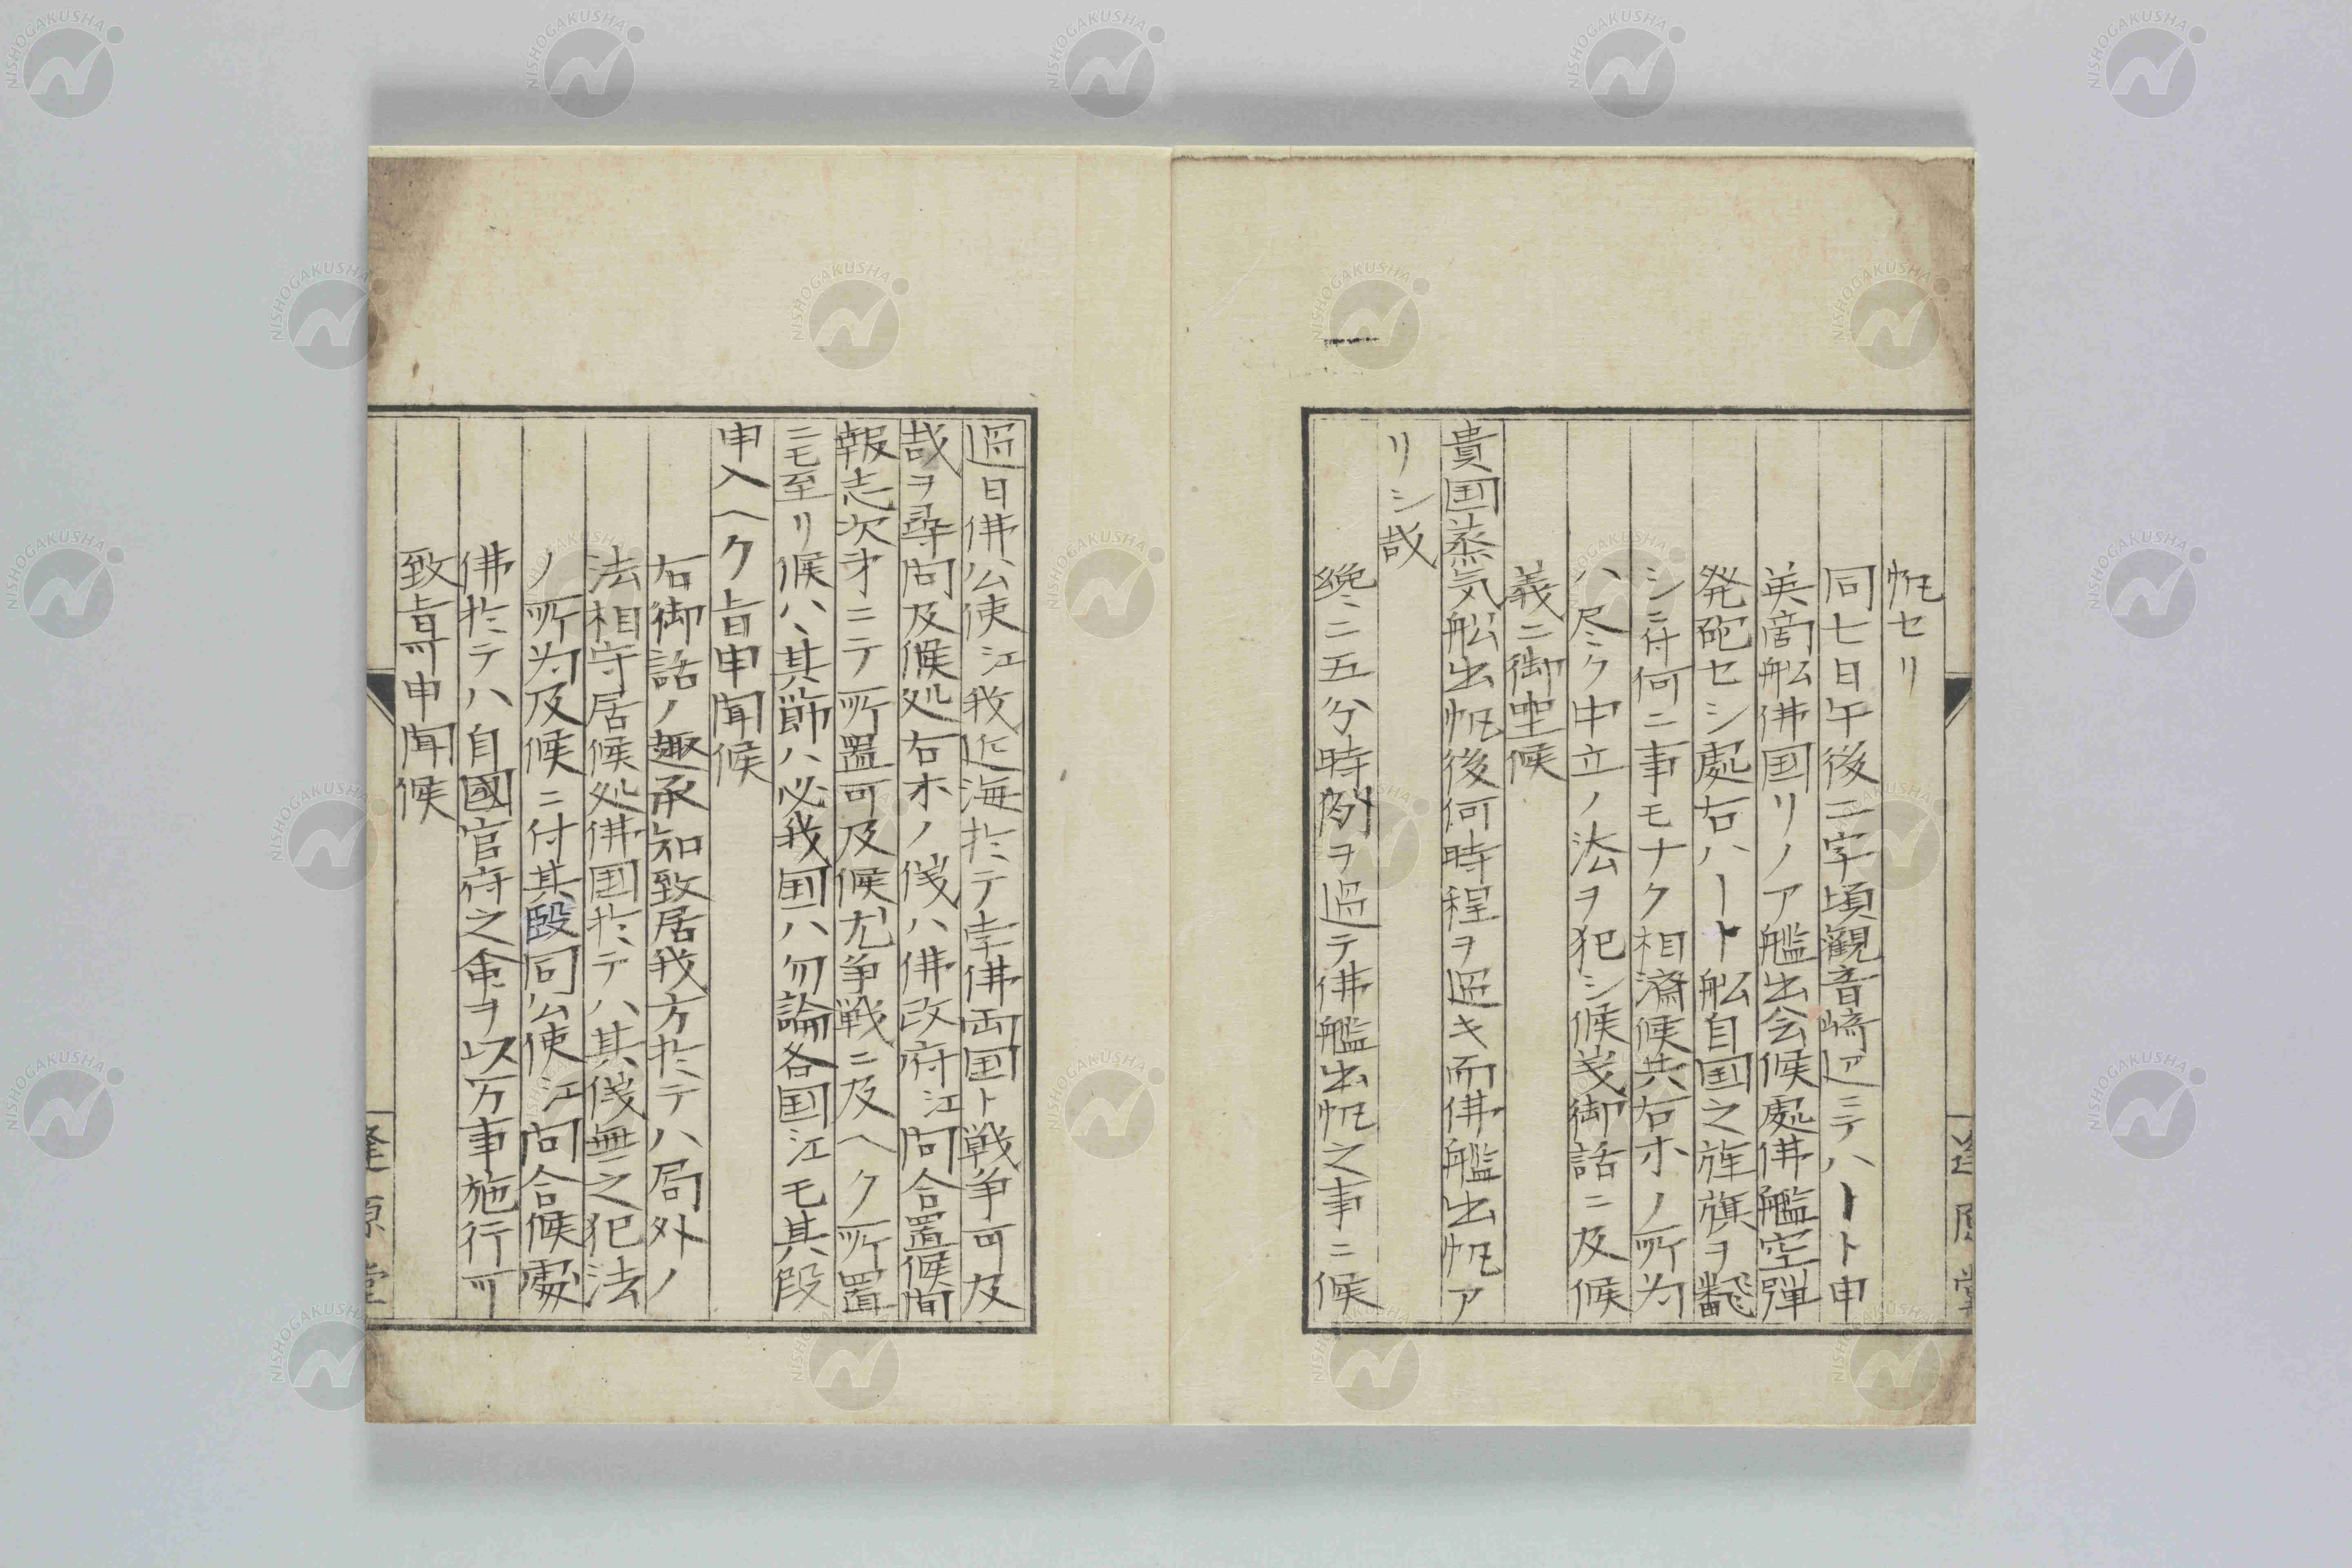 帆セリ
同七日午後二字頃観音崎辺ニテハート申
英商船佛国リノア艦出会候處佛艦空弾
発砲セシ處右ハート船自国之旌旗ヲ飜
シニ付何ニ事モナク相済候共右ホノ所为
ハ尽ミク中立ノ法ヲ犯シ候義御話ニ及候
義ニ御坐候
貴国蒸気舩出帆後何時程ヲ過キ而佛艦出帆ア
リシ哉
纔ニ二五分時間ヲ過テ佛艦出帆之事ニ候
過日佛公使江我近海於テ孛佛両国ト戦争可及
哉ヲ尋問及候処右ホノ儀ハ佛政府江問合置候間
報志次才ニテ所置可及候尤争戦ニ及ヘク所置
ニモ至リ候ハヽ其節ハ必我国ハ勿論各国江モ其段
申入ヘク旨申聞候
右御話ノ趣承知致居我方於テハ局外ノ
法相守居候処佛国於テハ其儀無之犯法
ノ所为及候ニ付其段同公使江問合候處
佛於テハ自國官府之命ヲ以万事施行可
致旨申聞候
逢原堂